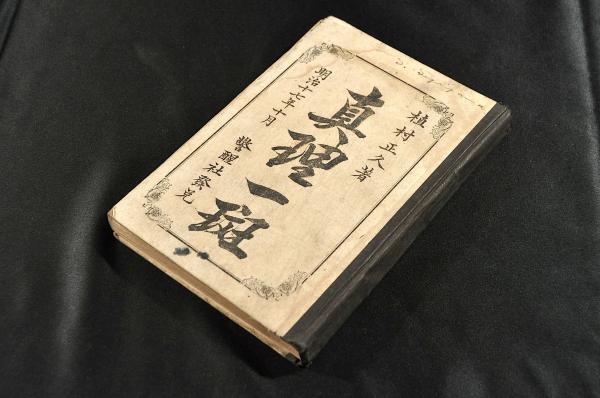 植村正久著
真理一斑
明治十七年十月
警醒社發兌